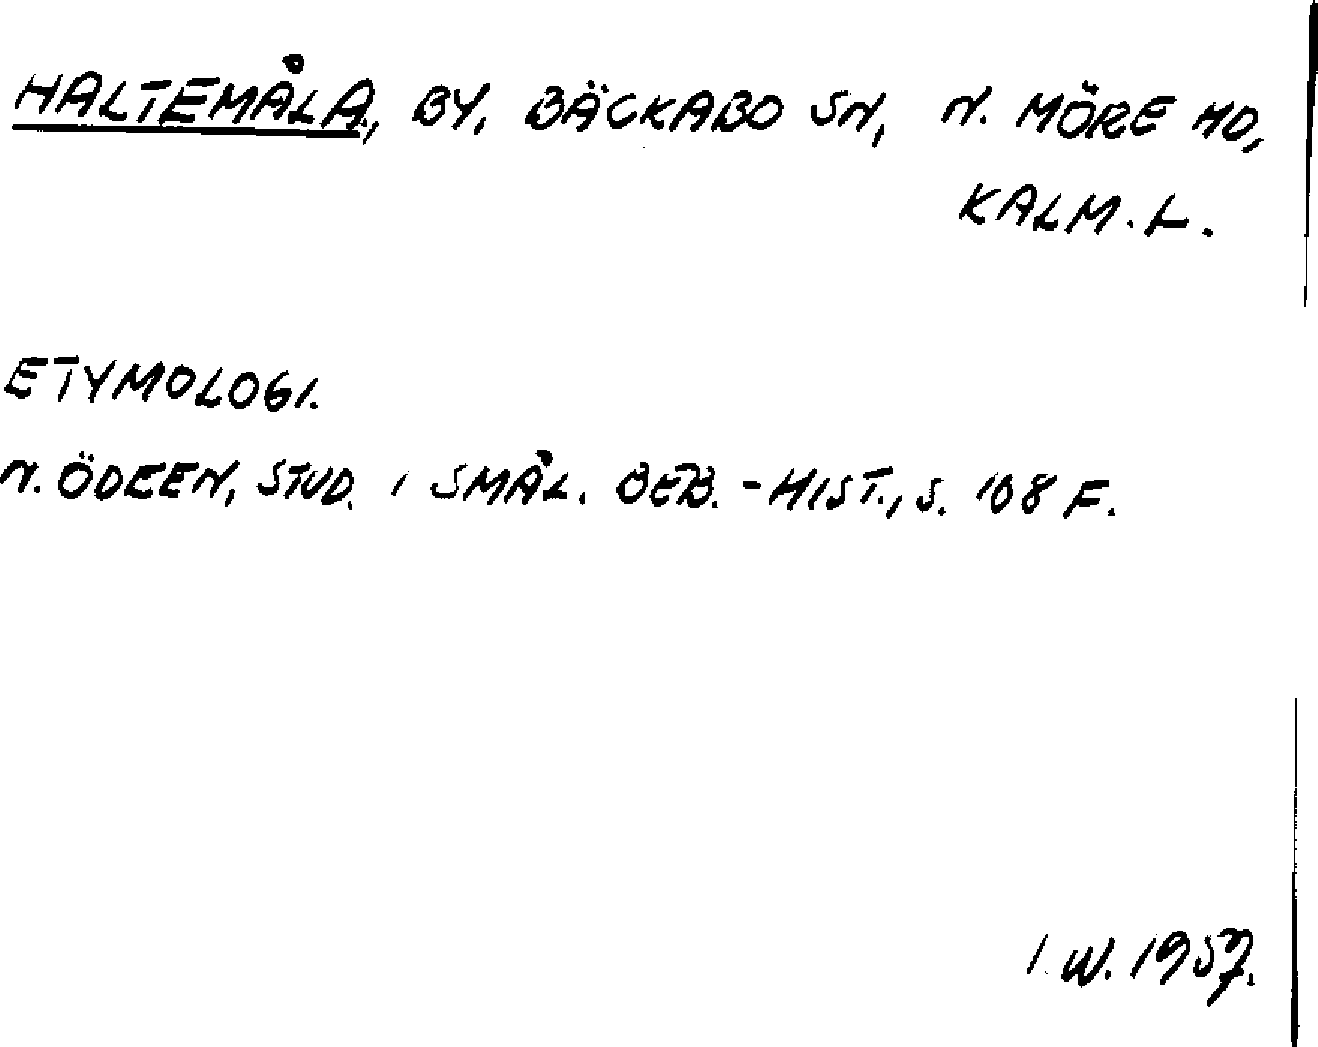 HALTEMÅLA, BY, BÄCKABO SN, N. MÖRE HD,
KALM. L.
ETYMOLOGI.
N. ÖDEEN, STUD. I SMÅL. BEB.-HIST., S. 108 F.
I.W. 1957.